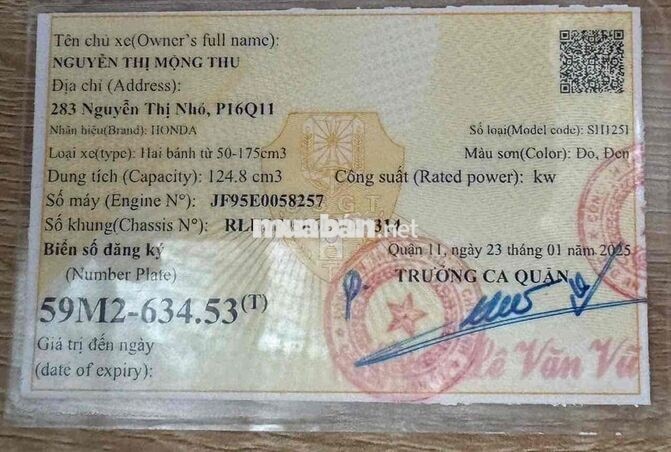 Tên chủ xe(Owner's full name):
NGUYỄN THỊ MỘNG THU
Địa chỉ (Address):
283 Nguyễn Thị Nhỏ, P16Q11
Nhãn hiệu(Brand): HONDA
Số loại(Model code): SH125I
Loại xe(type): Hai bánh từ 50-175cm3
Màu sơn(Color): Đỏ, Đen
Dung tích (Capacity): 124.8 cm3
Công suất (Rated power): kw
Số máy (Engine N°): JF95E0058257
Số khung(Chassis N°):
muaban.net
Biển số đăng ký
Quận 11, ngày 23 tháng 01 năm 2025
(Number Plate)
TRƯỞNG CA QUẢN
59M2-634.53(T)
Giá trị đến ngày
(date of expiry):
Lê Văn Vũ